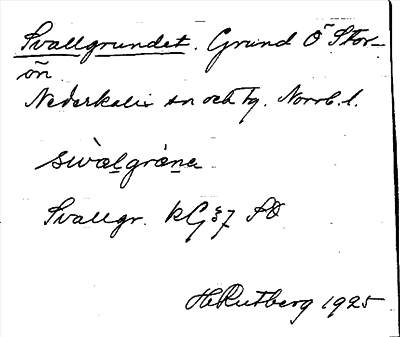 Svallgrundet. Grund Ö Stor-
ön
Nederkalix sn och tg. Norrb. l.
Svallgr. kG 37 SO
H Rutberg 1925